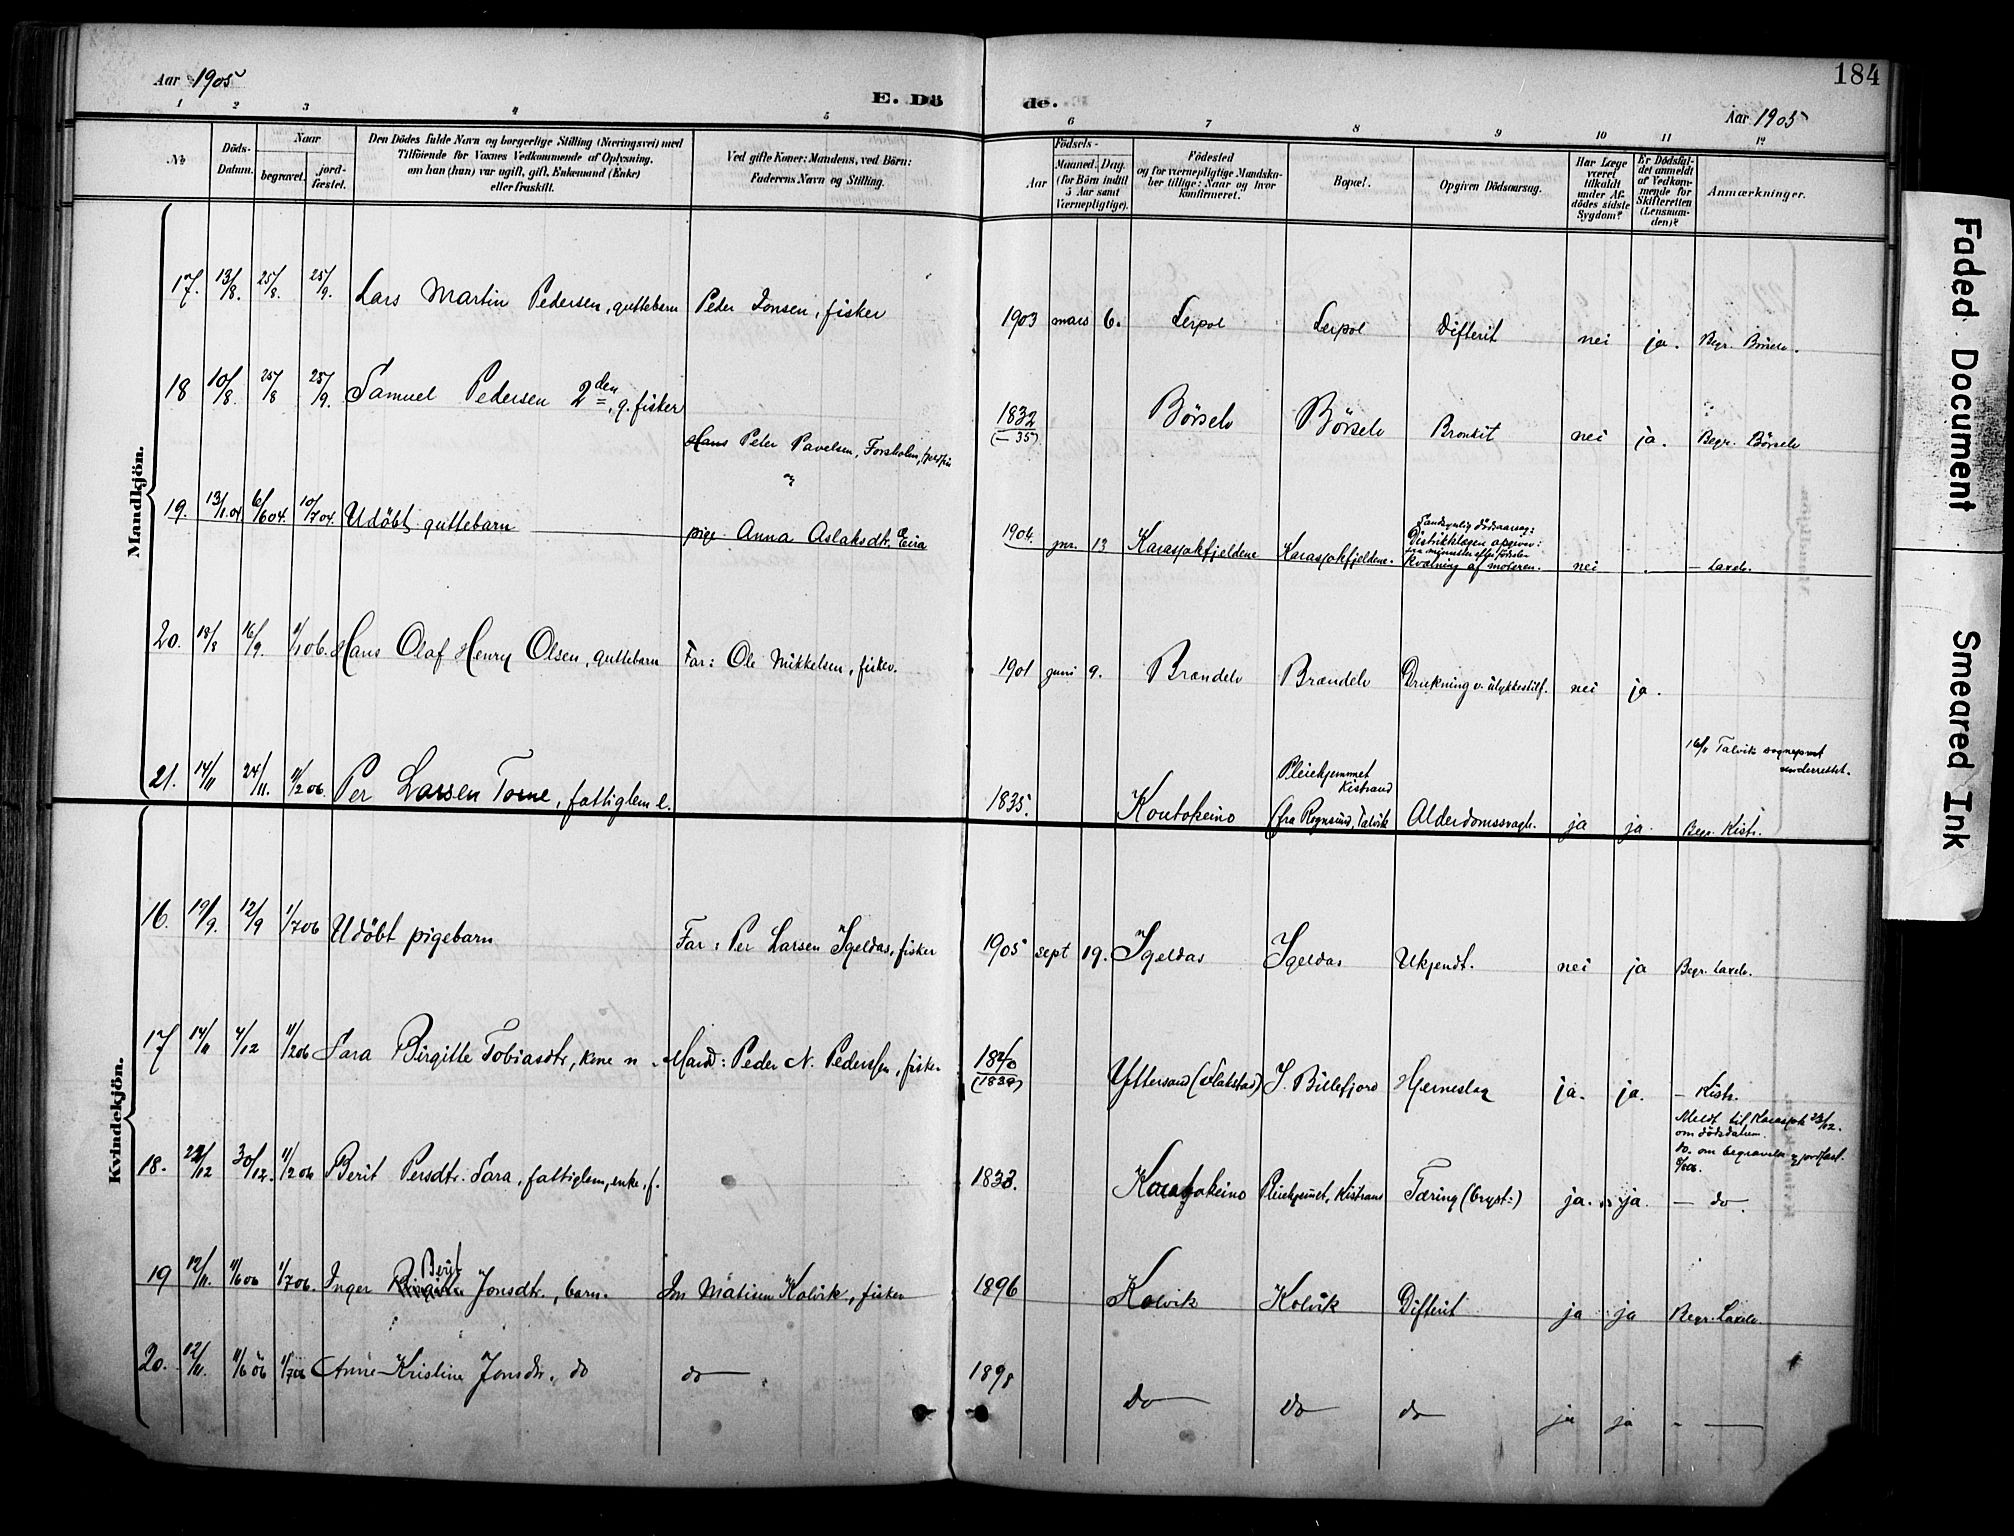 Aar 1905
E. Dö de.
184
Aar 1905
1 2 3 4 5 6 7 8 9 10 11 12
No
Döds-Datum.
Naar
begravet.
jord-fæstet.
Den Dödes fulde Navn og borgerlige Stilling (Næringsvei) med
Tilföiende for Voxnes Vedkommende af Oplysning,
om han (hun) var ugift, gift, Enkemand (Enke)
eller fraskilt.
Ved gifte Koner: Mandens, ved Börn:
Faderens Navn og Stilling.
Födsels-
Aar
Maaned. Dag.
(for Börn indtil
5 Aar samt
Værnepligtige).
Födested
og for værnepligtige Mandska-
ber tillige: Naar og hvor
konfirmeret.
Bopæl.
Opgiven Dödsaarsag.
Har Læge
været
tilkaldt
under Af-
dödes sidste
Sygdom?
Er Dödsfal-
det anmeldt
af Vedkom-
mende for
Skifteretten
(Lensman-
den)?
Anmærkninger.
Mandkjön.
17. 13/8. 25/8. 25/9. Lars Martin Pedersen, guttebarn Peder Jonsen, fisker 1903 mars 6. Lerpol Lerpol Difterit nei ja. Begr. Börselv.
18 10/8. 25/8 25/9. Samuel Pedersen 2den, g. fisker 1832 (– 35) Börselv Börselv Bronkit nei ja. Begr. Börselv
Hans Peter Pavelsen, Forsholm,
og
19. 13/1.04 6/6 04. 10/7 04. Udöbt guttebarn pige Anna Aslaksdt. Eira 1904. jnr. 13 Karasjokfjeldene Karasjokfjeldene.
Sandsynlig dödsaarsag:
Distriktslægen opgiver:
faa minutter efter födselen
Kvælning af moderen. nei – Laxelv.
20. 18/8 16/9. 1/1 06. Hans Olaf Henry Olsen, guttebarn Far: Ole Mikkelsen, fisker. 1901 juni 9. Brændelv Brændelv Drukning v. ulykkestilf. nei ja.
21. 14/11 24/11. 11/2 06. Per Larsen Torne, fattiglem e. 1835. Koutokeino
Pleiehjemmet
Kistrand
(fra Rognsund, Talvik Alderdomssvagh. ja ja.
16/11 Talvik sogneprest
underrettet.
Begr. Kistr.
Kvindekjön.
16. 19/9. 12/9 1/7 06 Udöbt pigebarn Far: Per Larsen Igeldas, fisker 1905 sept 19. Igeldas Igeldas Ukjendt. nei ja Begr. Laxelv.
17 14/11 4/12 11/2 06 Sara Birgitte Tobiasdtr, kone n. Mand: Peder N. Pedersen, fisker 1840 Yttersand (Flakstad) I. Billefjord Hjerneslag ja. ja. – Kistr.
Meldt til Karasjok 23/12.
om dödsdatum.
do. om begravelse og jordfæst.
18. 22/12 30/12. 11/2 06 Berit Persdtr. Sara, fattiglem, enke, f. 1833. Pleiehjemmet, Kistrand Tæring (bryst-) ja. ja. – do.
19 12/11. 11/6 06 1/7 06. Inger Birgitte Berit Jonsdtr., barn. Jon Matisen Kolvik, fisker 1896 Kolvik Kolvik Difterit ja ja Begr. Laxelv
20. 12/11. 11/6 06 1/7 06 Anne Kristine Jonsdtr. do do 1898 do do do ja ja – —
Faded Document
Smeared Ink